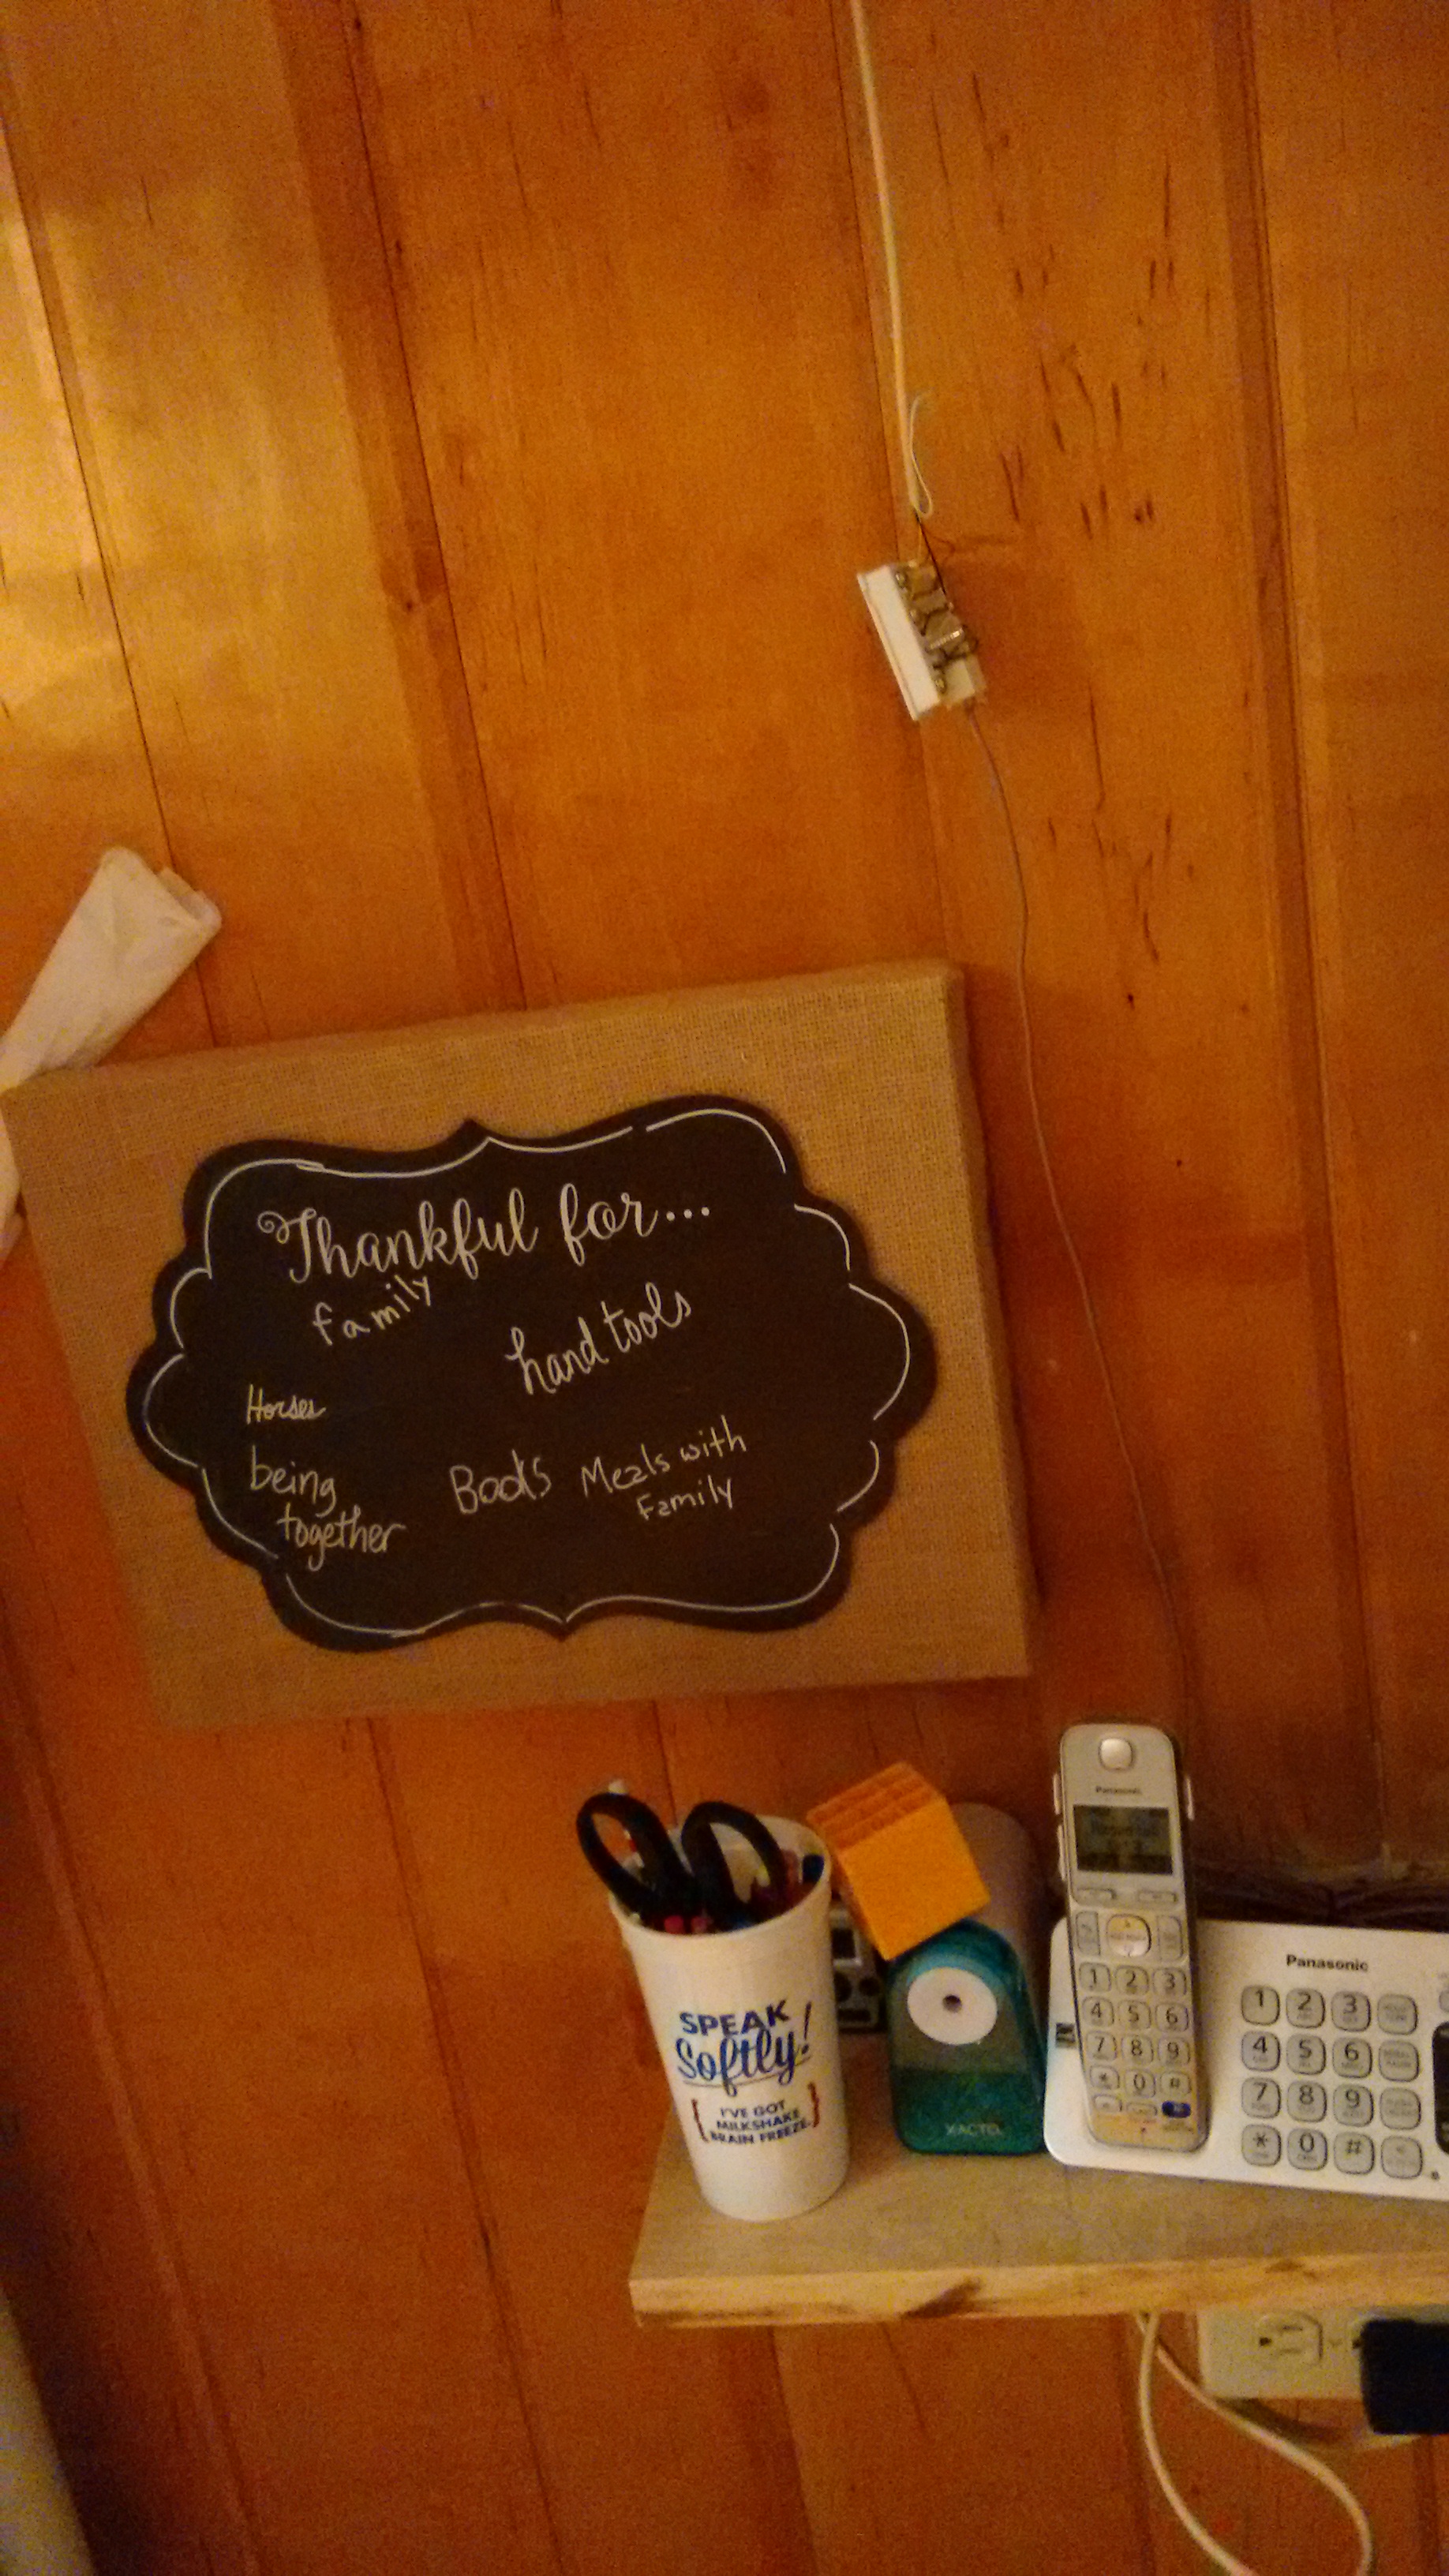 Thankful for...
family
hand tools
Horses
being
together
Books
Meals with
Family
SPEAK
Softly!
I'VE GOT
MILKSHAKE
BRAIN FREEZE.
X-ACTO
Panasonic
1 2 3
4 5 6
7 8 9
* 0 #
Panasonic
1 2 3
4 5 6
7 8 9
* 0 #